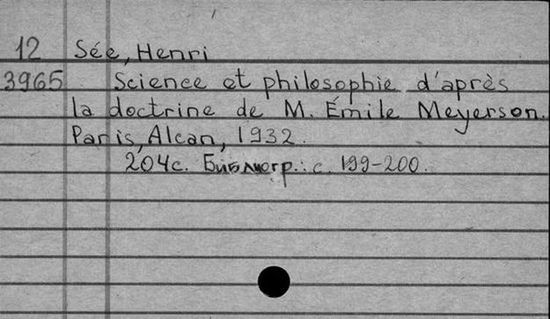 12 Sée, Henri
3965 Science et philosophie d'après
la doctrine de M. Émile Meyerson.
Paris, Alcan, 1932.
204с. Библиогр.: с. 199-200.